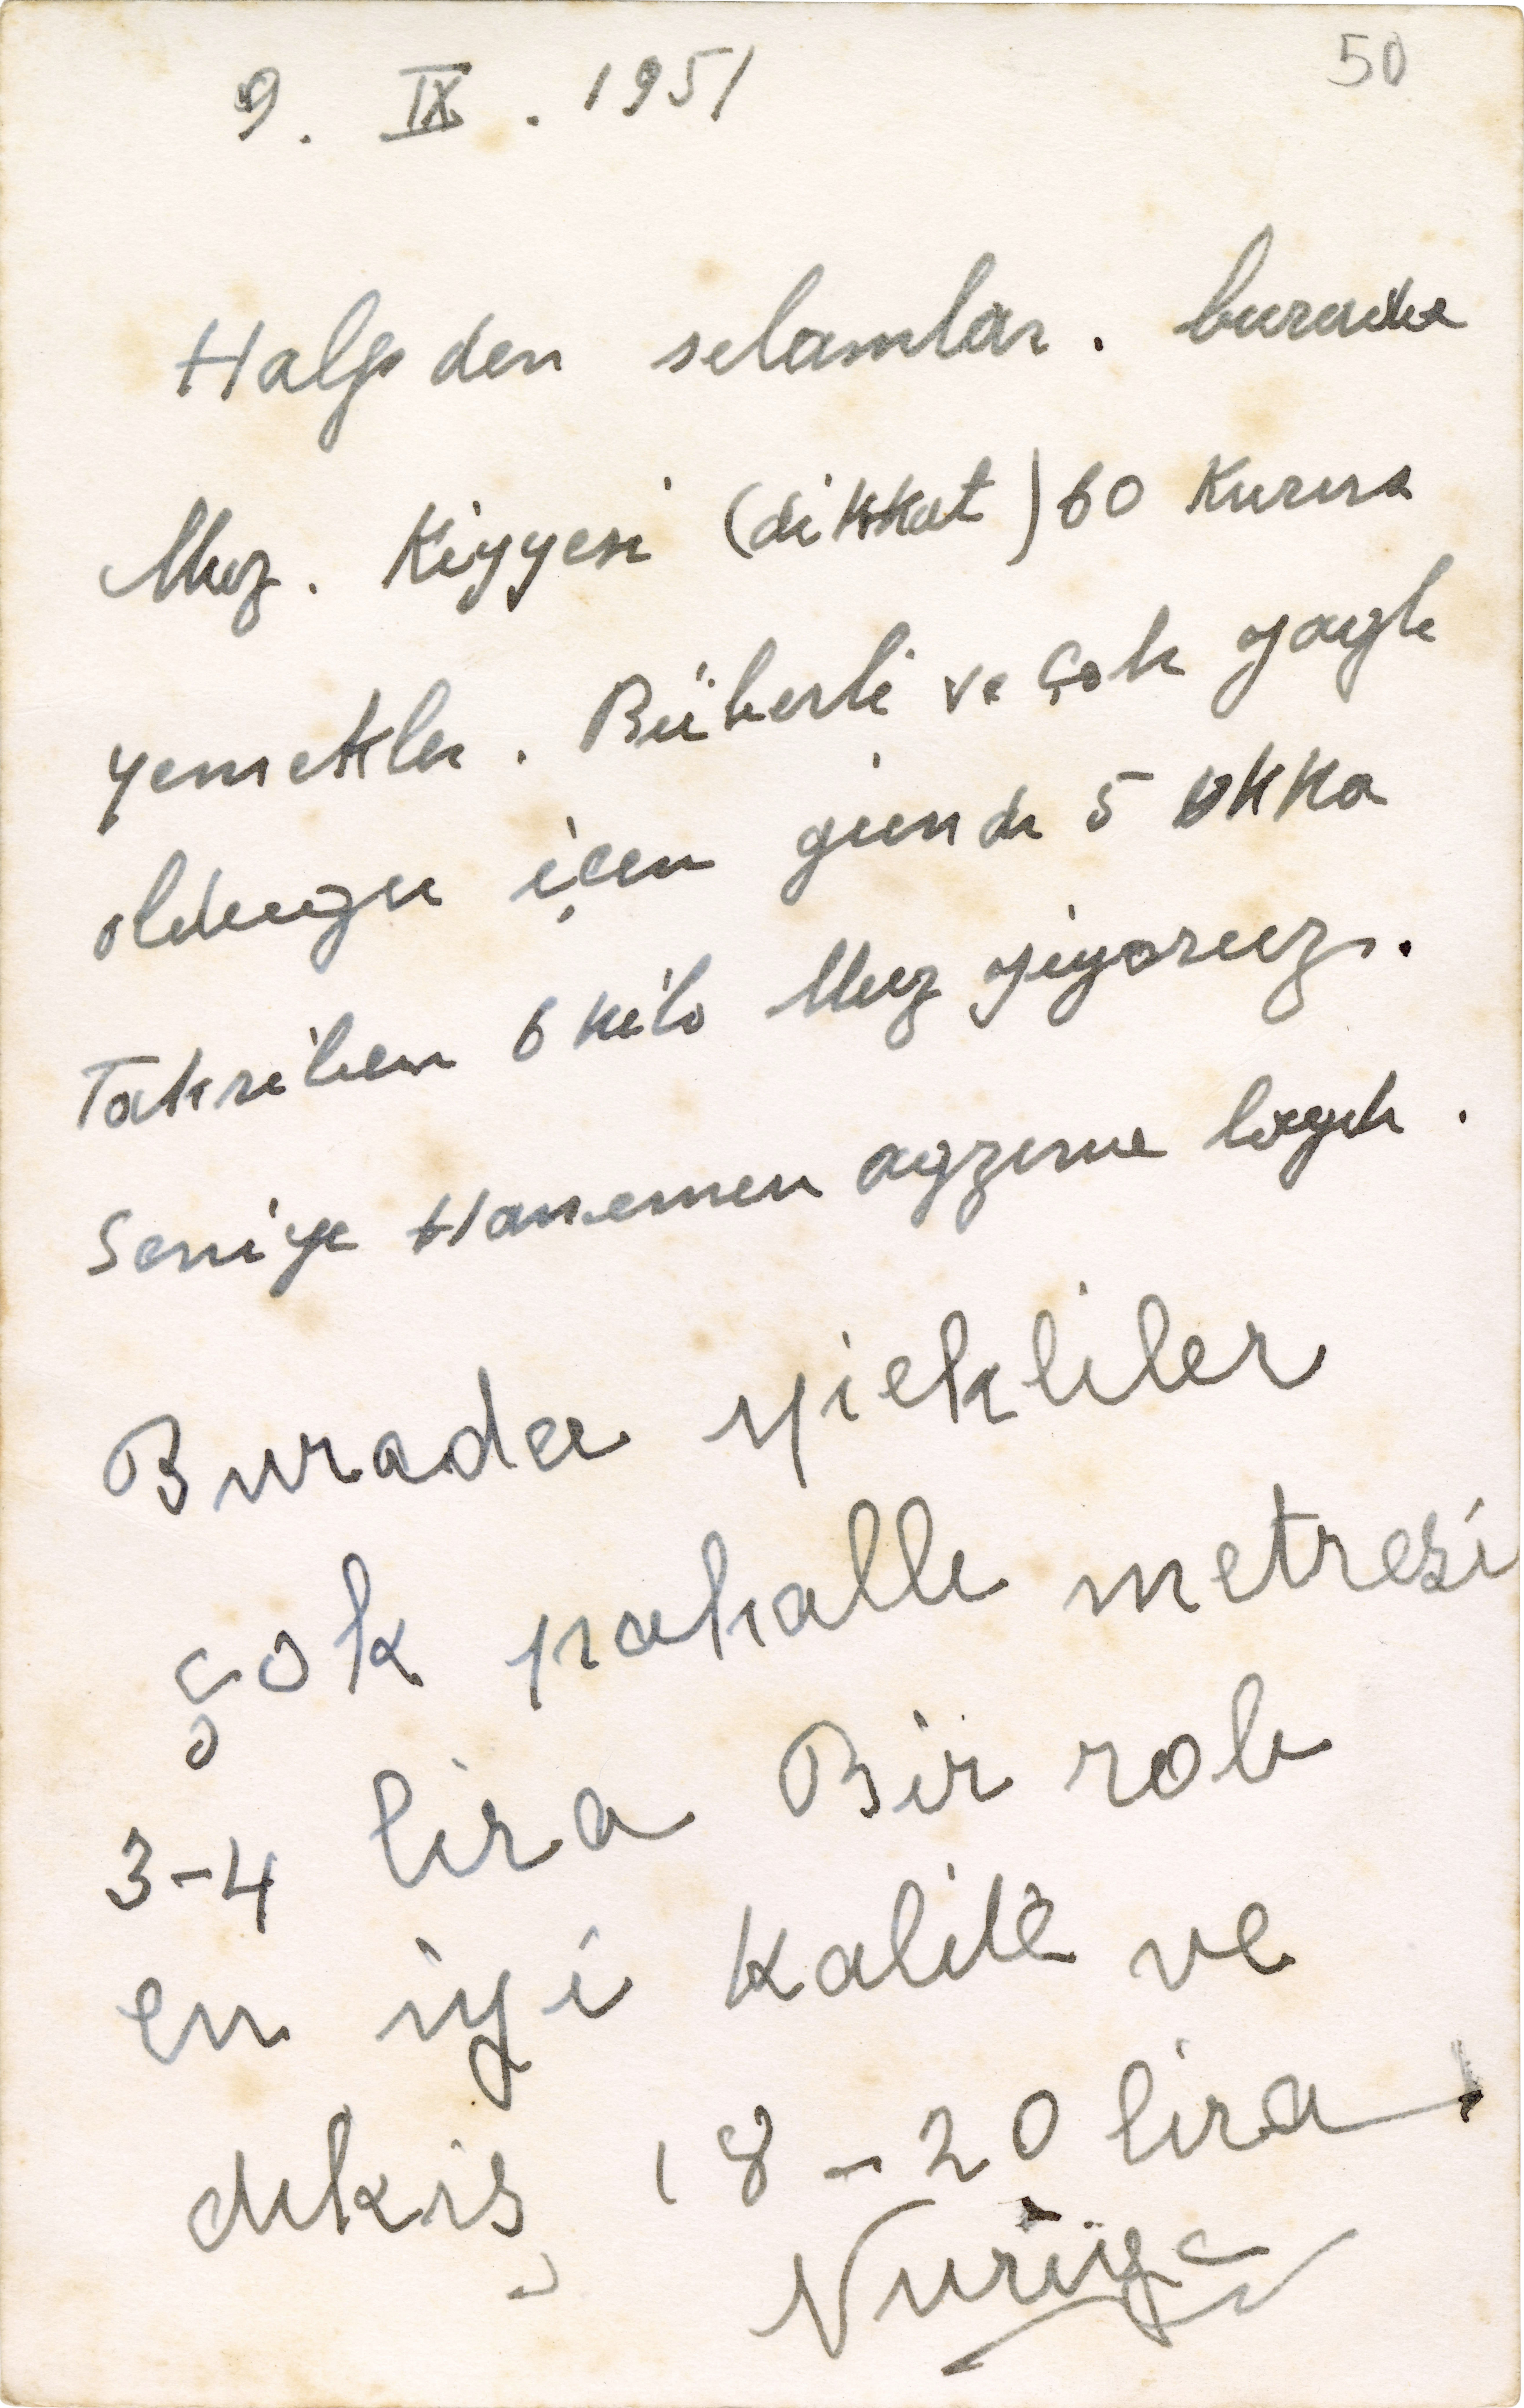 50
9. IX. 1951
Halp den selamlar. burada
Muz. Kiyyesi (dikkat) 60 Kurus
yemekler. Büberli ve çok yagli
oldugu için günde 5 okka
Takriben 6 kilo Muz yiyoruz.
Seniye Hanemen agzına layık.
Burada ipekliler
çok pahallı metresi
3-4 lira Bir rob
en iyi kalite ve
dikiş 18-20 lira
Nuriye